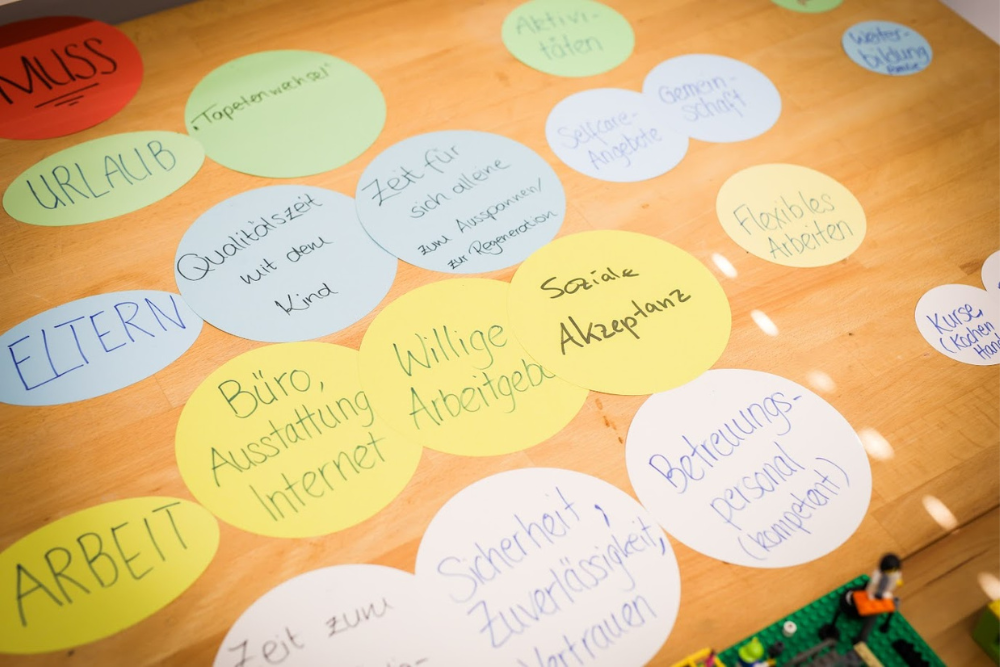 MUSS
„Tapetenwechsel"
Aktivi-
täten
Weiter-
bildung
URLAUB
Qualitätszeit
mit dem
Kind
Zeit für
sich alleine
zum Ausspannen/
zur Regeneration
Selfcare-
Angebote
Gemein-
schaft
Flexibles
Arbeiten
ELTERN
Büro,
Ausstattung
Internet
Willige
Arbeitgeb
Soziale
Akzeptanz
Kurse,
(Kochen
Hand
ARBEIT
Zeit zum
Sicherheit,
Zuverlässigkeit,
Vertrauen
Betreuungs-
personal
(kompetent)